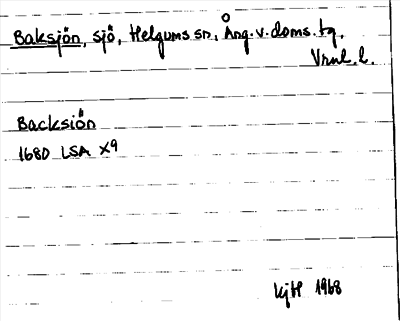 Baksjön, sjö, Helgums sn, Ång. v. doms. tg.
Vrnl. l.
Backsiön
1680 LSA X9
1968